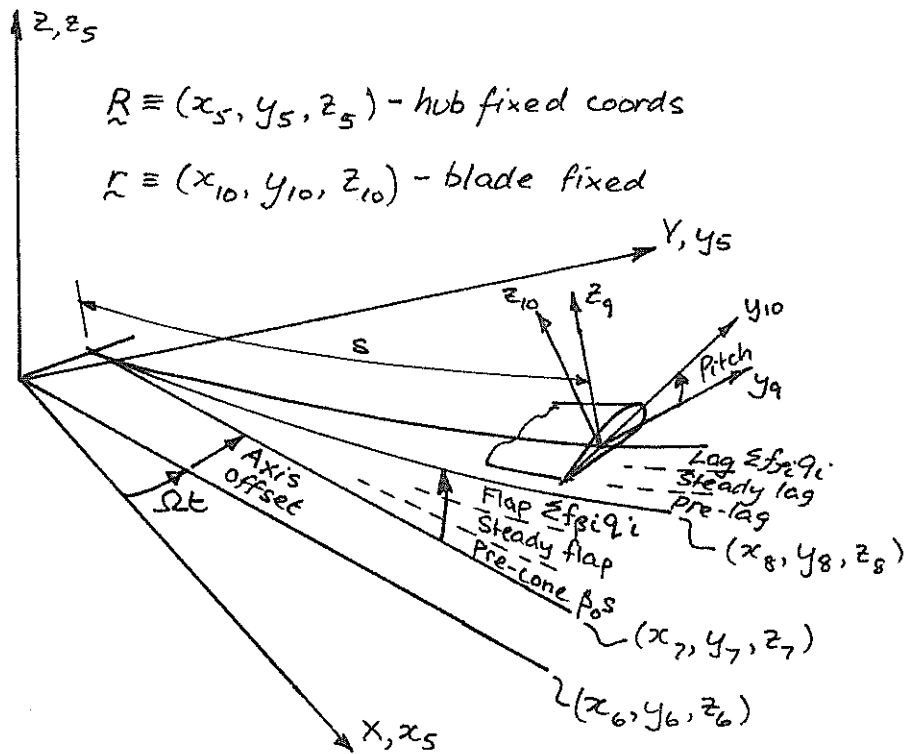 Z, z₅
R ≡ (x₅, y₅, z₅) - hub fixed coords
r ≡ (x₁₀, y₁₀, z₁₀) - blade fixed
Y, y₅
z₁₀
z₉
y₁₀
s
Pitch
y₉
Axis
offset
Ωt
Lag Σfₚᵢqᵢ
Steady lag
pre-lag
Flap Σfᵦᵢqᵢ
Steady flap
Pre-cone β₀s
(x₈, y₈, z₈)
(x₇, y₇, z₇)
(x₆, y₆, z₆)
X, x₅